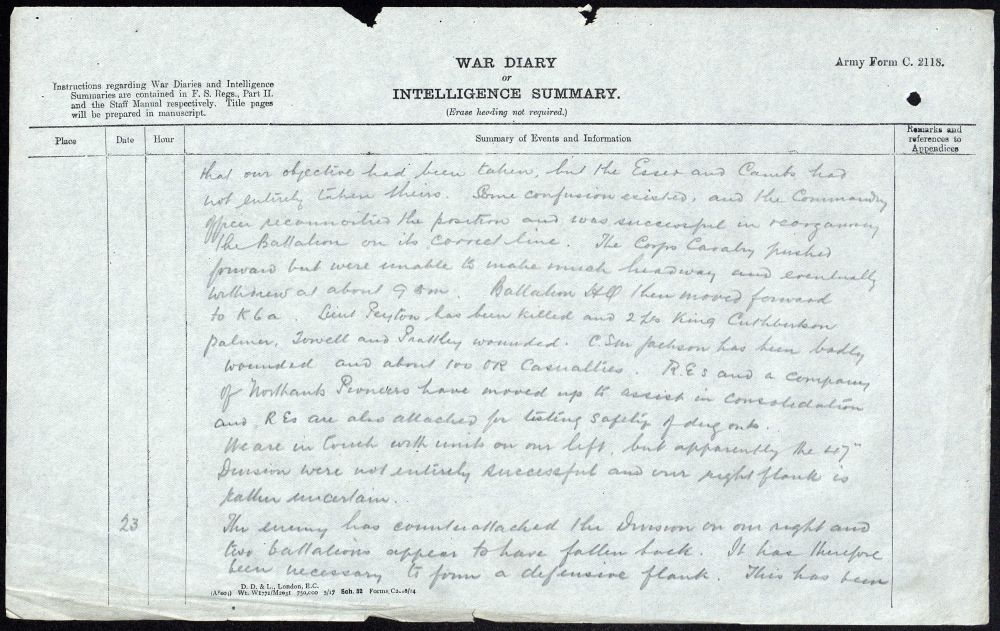 WAR DIARY
or
INTELLIGENCE SUMMARY.
(Erase heading not required.)
Army Form C. 2118.
Instructions regarding War Diaries and Intelligence
Summaries are contained in F. S. Regs., Part II.
and the Staff Manual respectively. Title pages
will be prepared in manuscript.
Place
Date
Hour
Summary of Events and Information
Remarks and
references to
Appendices
that our objective had been taken, but the Essex and Cambs had
not entirely taken theirs. Some confusion existed, and the Commanding
Officer reconnoitred the position and was successful in reorganising
the Battalion on its correct line. The Corps Cavalry pushed
forward but were unable to make much headway and eventually
withdrew at about 9 am. Battalion HQ then moved forward
to K6a. Lieut Peyton has been killed and 2 Lts King Cuthbertson
Palmer, Towell and Prattley wounded. CSM Jackson has been badly
wounded and about 100 OR Casualties. R.E.s and a company
of Northants Pioneers have moved up to assist in consolidation
and REs are also attached for testing safety of dug outs.
We are in touch with units on our left, but apparently the 47th
Division were not entirely successful and our right flank is
rather uncertain.
23
The enemy has counterattacked the Division on our right and
two battalions appear to have fallen back. It has therefore
been necessary to form a defensive flank. This has been
D. D. & L., London, E.C.
Wt. W1771/M2031 750,000 5/17 Sch. 52 Forms/C2118/14